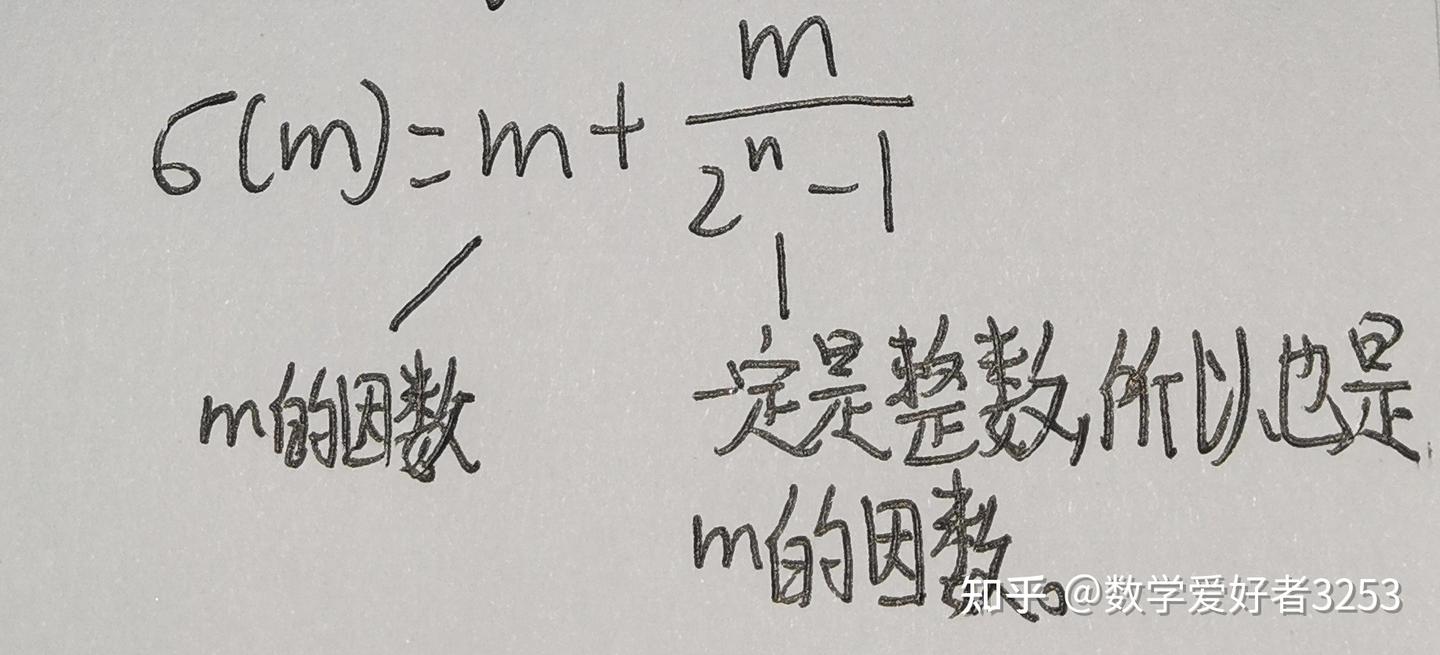 σ(m)=m+m/(2ⁿ-1)
m的因数
一定是整数,所以也是
m的因数。
知乎 @数学爱好者3253